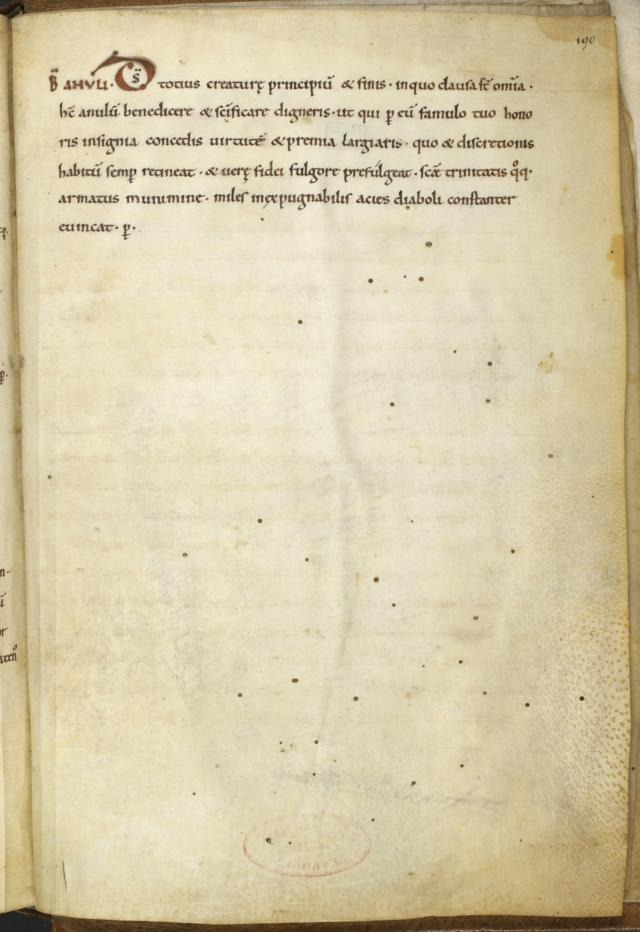 190
B̄ ANULI. D̄S totius creaturę principiū & finis · in quo clausa st̄ om̄ia ·
hc̄ anulū benedicere & sc̄ificare digneris · ut qui p eū famulo tuo hono
ris insignia concedis uirtutē & premia largiaris · quo & discretionis
habitū semp retineat · & uerę fidei fulgore prefulgeat · scæ trinitatis qq̇ ·
armatus munimine · miles inexpugnabilis acies diaboli constanter
euincat · p̄ ·